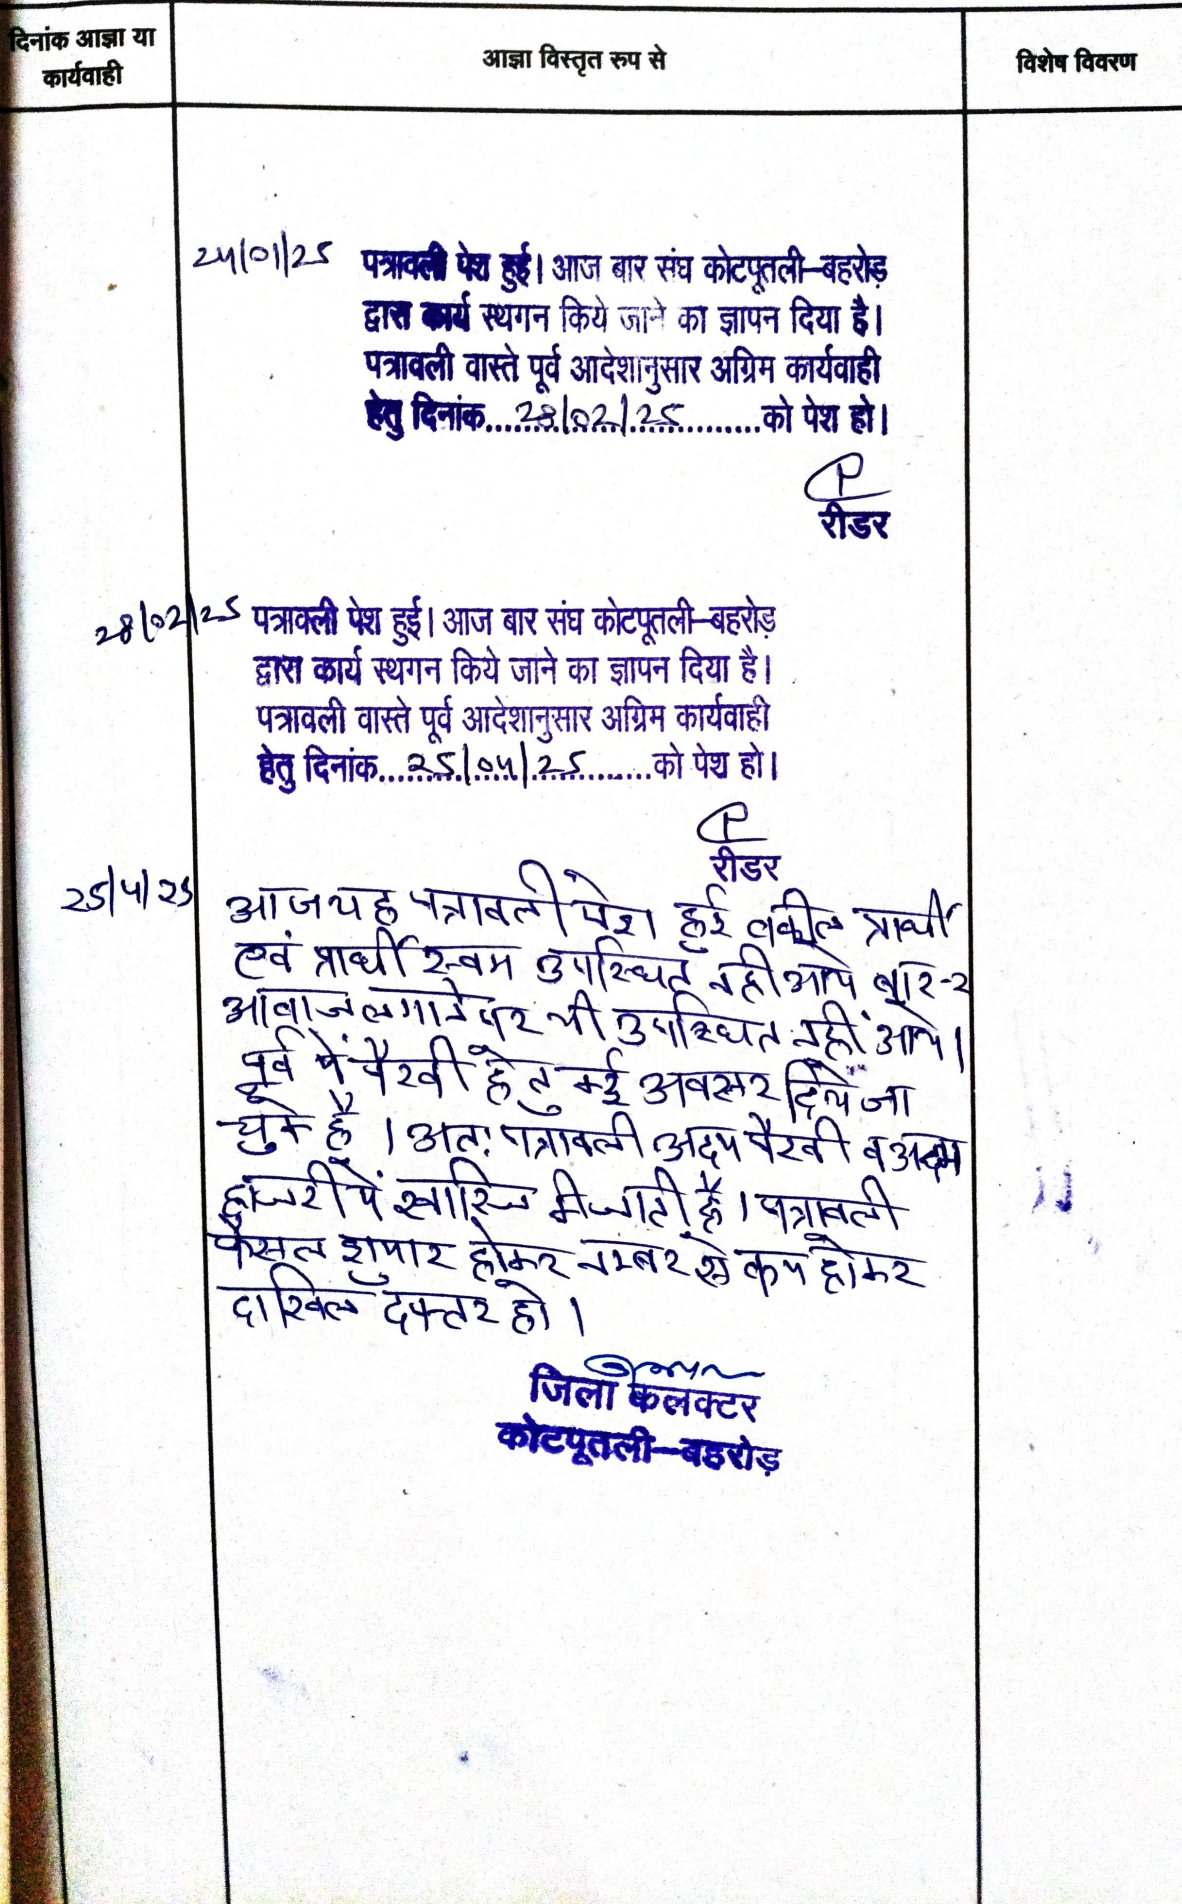 दिनांक आज्ञा या
कार्यवाही
आज्ञा विस्तृत रुप से
विशेष विवरण
24/01/25 पत्रावली पेश हुई। आज बार संघ कोटपूतली–बहरोड़
द्वारा कार्य स्थगन किये जाने का ज्ञापन दिया है।
पत्रावली वास्ते पूर्व आदेशानुसार अग्रिम कार्यवाही
हेतु दिनांक....28/02/25....को पेश हो।
रीडर
28/02/25 पत्रावली पेश हुई। आज बार संघ कोटपूतली–बहरोड़
द्वारा कार्य स्थगन किये जाने का ज्ञापन दिया है।
पत्रावली वास्ते पूर्व आदेशानुसार अग्रिम कार्यवाही
हेतु दिनांक....25/04/25....को पेश हो।
रीडर
25/4/25 आज यह पत्रावली पेश हुई वकील प्रार्थी
एवं प्रार्थी स्वम उपस्थित नहीं आये बार-२
आवाज लगाने पर भी उपस्थित नहीं आये।
पूर्व में पैरवी हेतु कई अवसर दिये जा
चुके है। अतः पत्रावली अदम पैरवी व अदम
हाजरी में खारिज की जाती है। पत्रावली
फैसल शुमार होकर नम्बर से कम होकर
दाखिल दफ्तर हो।
जिला कलक्टर
कोटपूतली–बहरोड़